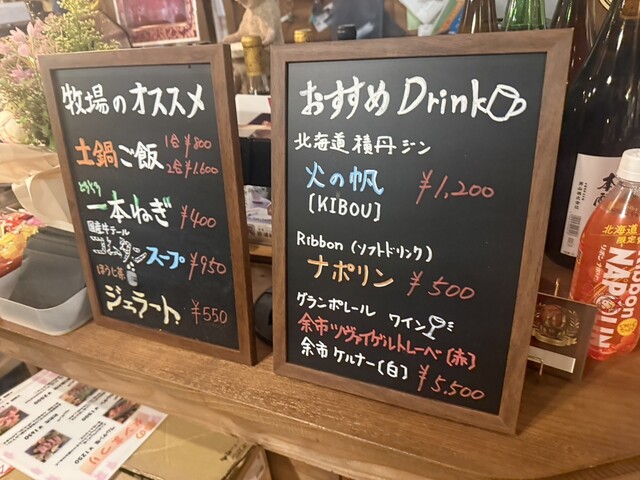 牧場のオススメ
土鍋ご飯
1合 ¥800
2合 ¥1,600
とろ〜り
一本ねぎ ¥400
国産牛テール
スープ ¥950
ほうじ茶
ジェラート ¥550
おすすめ Drink
北海道 積丹 ジン
火の帆 ¥1,200
[KIBOU]
Ribbon (ソフトドリンク)
ナポリン ¥500
グランポレール ワイン
余市ツヴァイゲルトレーベ〔赤〕
余市ケルナー〔白〕 ¥5,500
北海道
限定
Ribbon
NAPOLIN